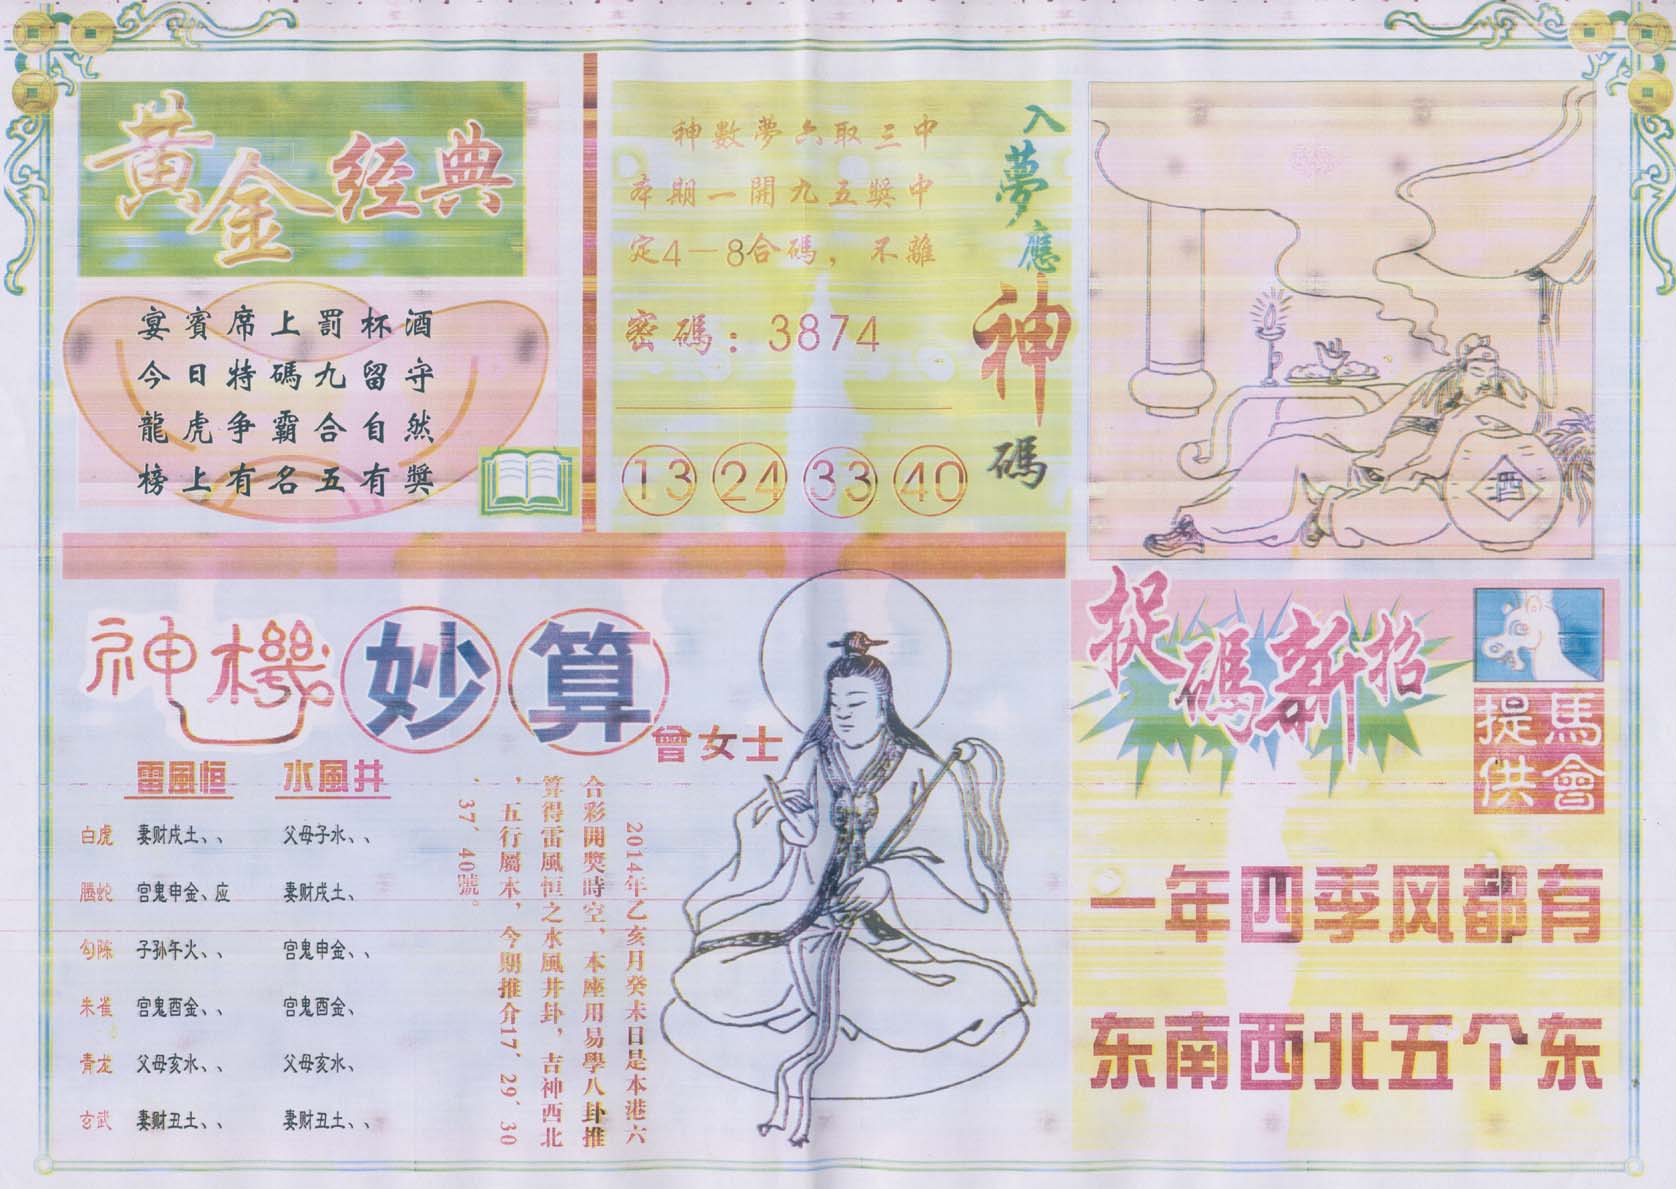 黄金经典
宴賓席上罰杯酒
今日特碼九留守
龍虎争霸合自然
榜上有名五有獎
入夢應神碼
神數夢六取三中
本期一開九五獎中
定4－8合碼，不離
密碼：3874
13 24 33 40
酒
神機妙算
曾女士
雷風恒 水風井
白虎 妻财戌土、、 父母子水、、
螣蛇 官鬼申金、应 妻财戌土、
勾陈 子孙午火、、 官鬼申金、、
朱雀 官鬼酉金、、 官鬼酉金、
青龙 父母亥水、、 父母亥水、
玄武 妻财丑土、、 妻财丑土、、
2014年乙亥月癸未日是本港六
合彩開獎時空、本座用易學八卦推
算得雷風恒之水風井卦，吉神西北
，五行屬木，今期推介17、29、30
、37、40號。
捉碼新招
馬會提供
一年四季风都有
东南西北五个东